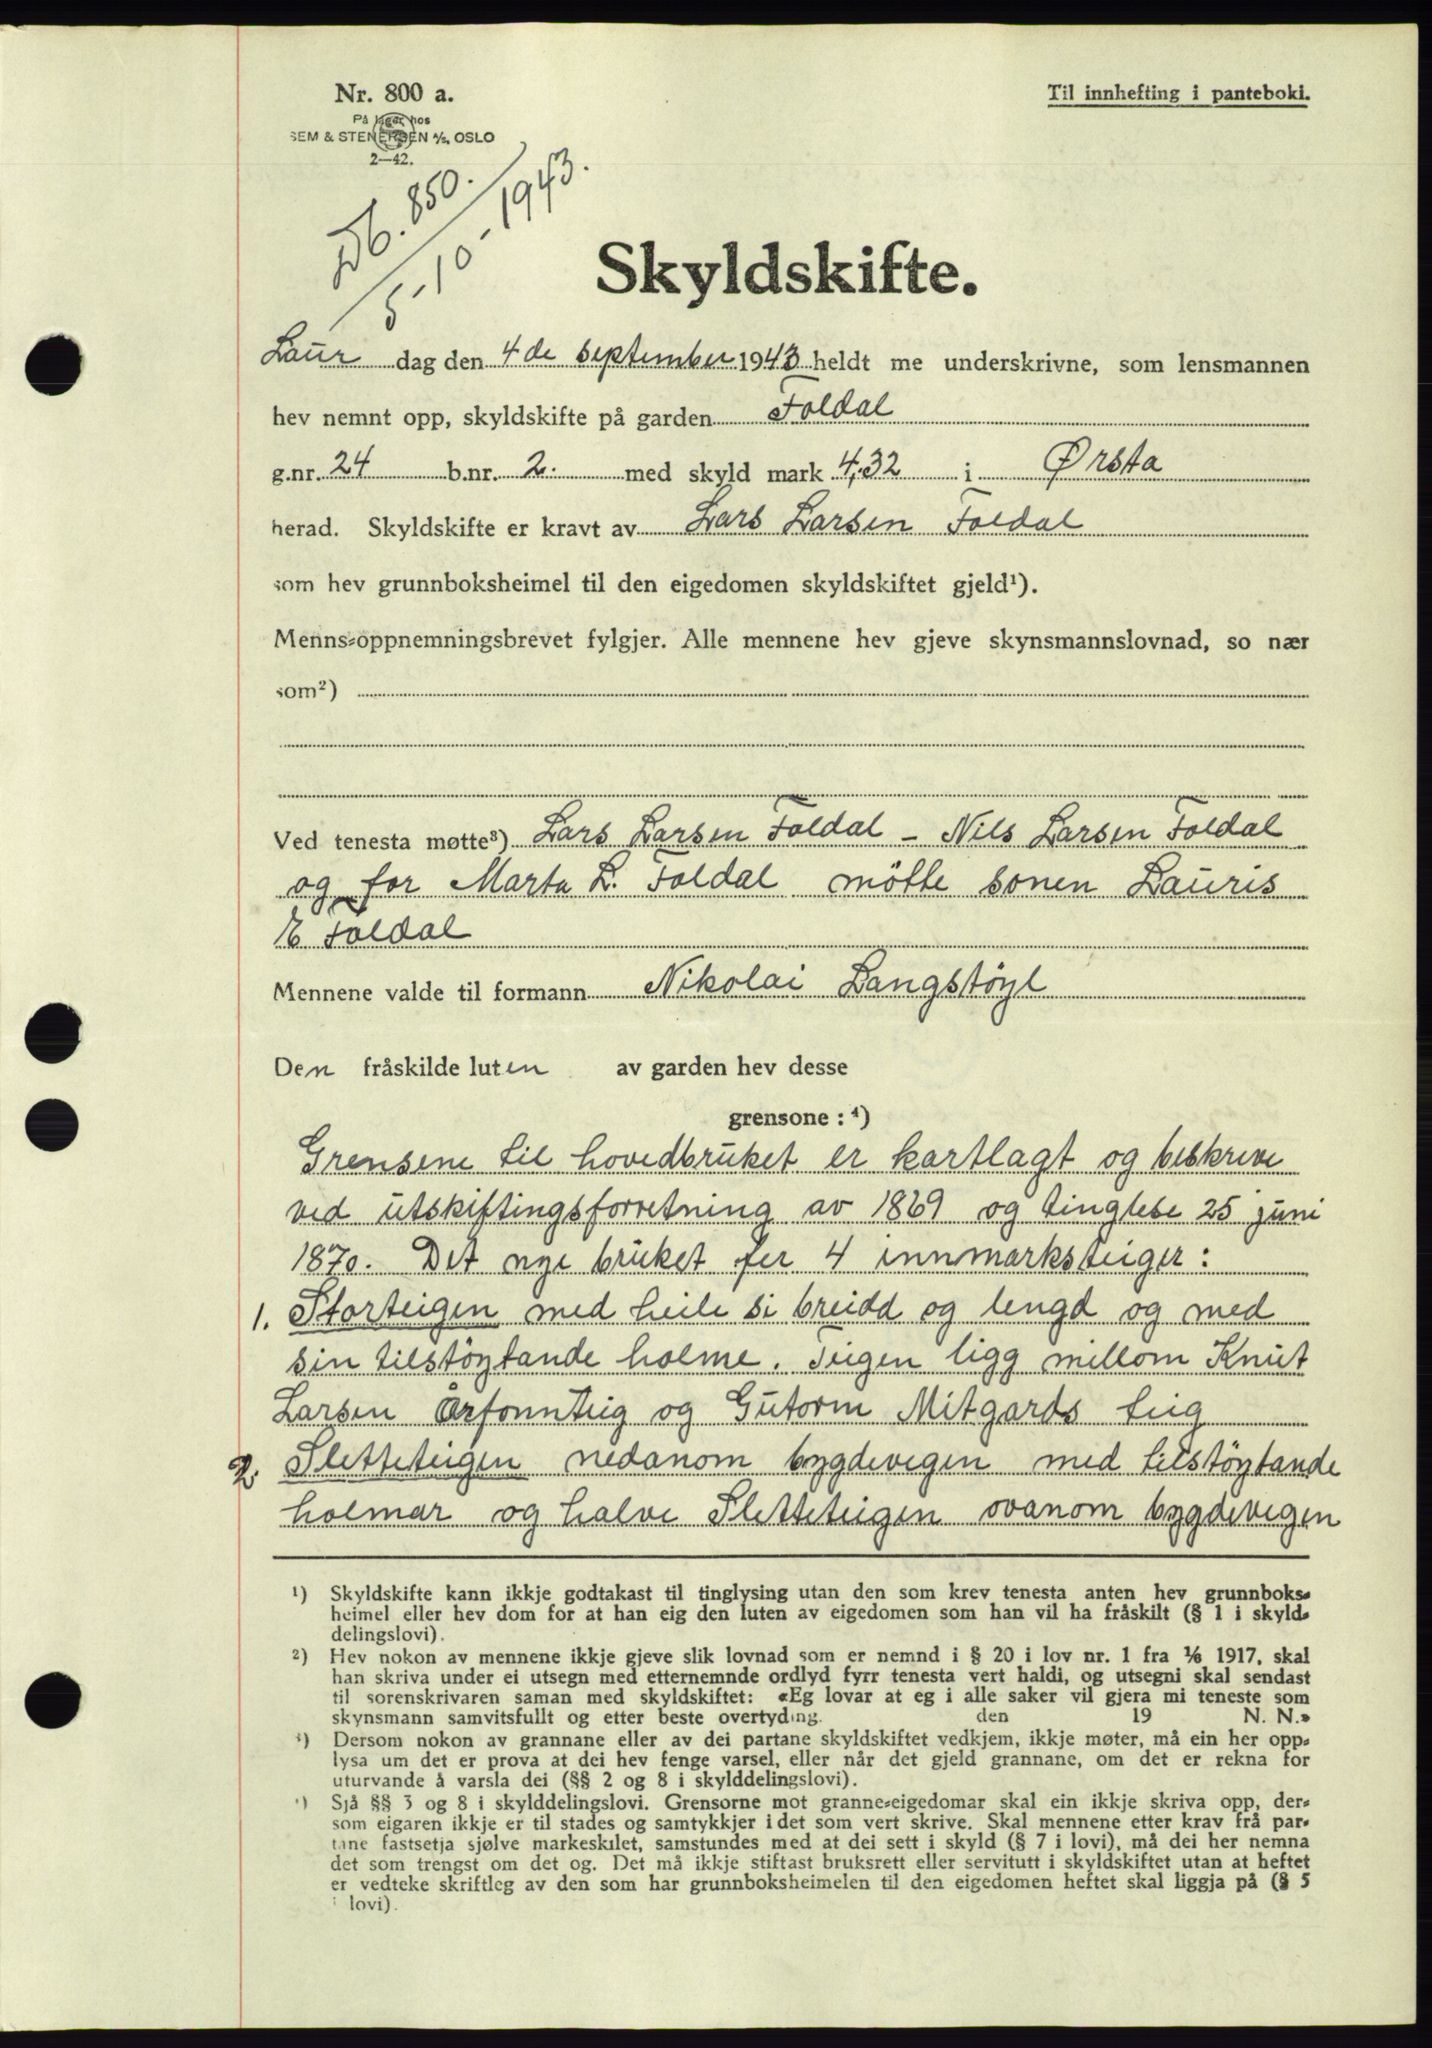 Nr. 800 a.
Til innhefting i panteboki.
På lager hos
SEM & STENERSEN A/S, OSLO
2—42.
Db. 850.
5-10-1943.
Skyldskifte.
Laur dag den 4de september 1943 heldt me underskrivne, som lensmannen
hev nemnt opp, skyldskifte på garden Foldal
g.nr. 24 b.nr. 2. med skyld mark 4,32 i Ørsta
herad. Skyldskifte er kravt av Lars Larsen Foldal
som hev grunnboksheimel til den eigedomen skyldskiftet gjeld¹).
Menns-oppnemningsbrevet fylgjer. Alle mennene hev gjeve skynsmannslovnad, so nær
som²)
Ved tenesta møtte³) Lars Larsen Foldal – Nils Larsen Foldal
og for Marta L. Foldal mötte sonen Lauris
E Foldal
Mennene valde til formann Nikolai Langstöyl
Den fråskilde luten av garden hev desse
grensone : ⁴)
Grensene til hovedbruket er kartlagt og beskreve
ved utskiftingsforretning av 1869 og tinglese 25 juni
1870. Det nye bruket fer 4 innmarksteiger :
1. Storteigen med heile si breidd og lengd og med
sin tilstöytande holme. Teigen ligg millom Knut
Larsen Årfonnteig og Gutorm Mitgards teig
2. Sletteteigen nedanom bygdevegen med tilstöytande
holmar og halve Sletteteigen ovanom bygdevegen
¹) Skyldskifte kann ikkje godtakast til tinglysing utan den som krev tenesta anten hev grunnboks-
heimel eller hev dom for at han eig den luten av eigedomen som han vil ha fråskilt (§ 1 i skyld-
delingslovi).
²) Hev nokon av mennene ikkje gjeve slik lovnad som er nemnd i § 20 i lov nr. 1 fra 1/6 1917, skal
han skriva under ei utsegn med etternemnde ordlyd fyrr tenesta vert haldi, og utsegni skal sendast
til sorenskrivaren saman med skyldskiftet: «Eg lovar at eg i alle saker vil gjera mi teneste som
skynsmann samvitsfullt og etter beste overtyding. den 19 N. N.»
³) Dersom nokon av grannane eller av dei partane skyldskiftet vedkjem, ikkje møter, må ein her opp-
lysa um det er prova at dei hev fenge varsel, eller når det gjeld grannane, om det er rekna for
uturvande å varsla dei (§§ 2 og 8 i skylddelingslovi).
⁴) Sjå §§ 3 og 8 i skylddelingslovi. Grensorne mot granne-eigedomar skal ein ikkje skriva opp, der-
som eigaren ikkje er til stades og samtykkjer i det som vert skrive. Skal mennene etter krav frå par-
tane fastsetja sjølve markeskilet, samstundes med at dei sett i skyld (§ 7 i lovi), må dei her nemna
det som trengst om det og. Det må ikkje stiftast bruksrett eller servitutt i skyldskiftet utan at heftet
er vedteke skriftleg av den som har grunnboksheimelen til den eigedomen heftet skal liggja på (§ 5
i lovi).